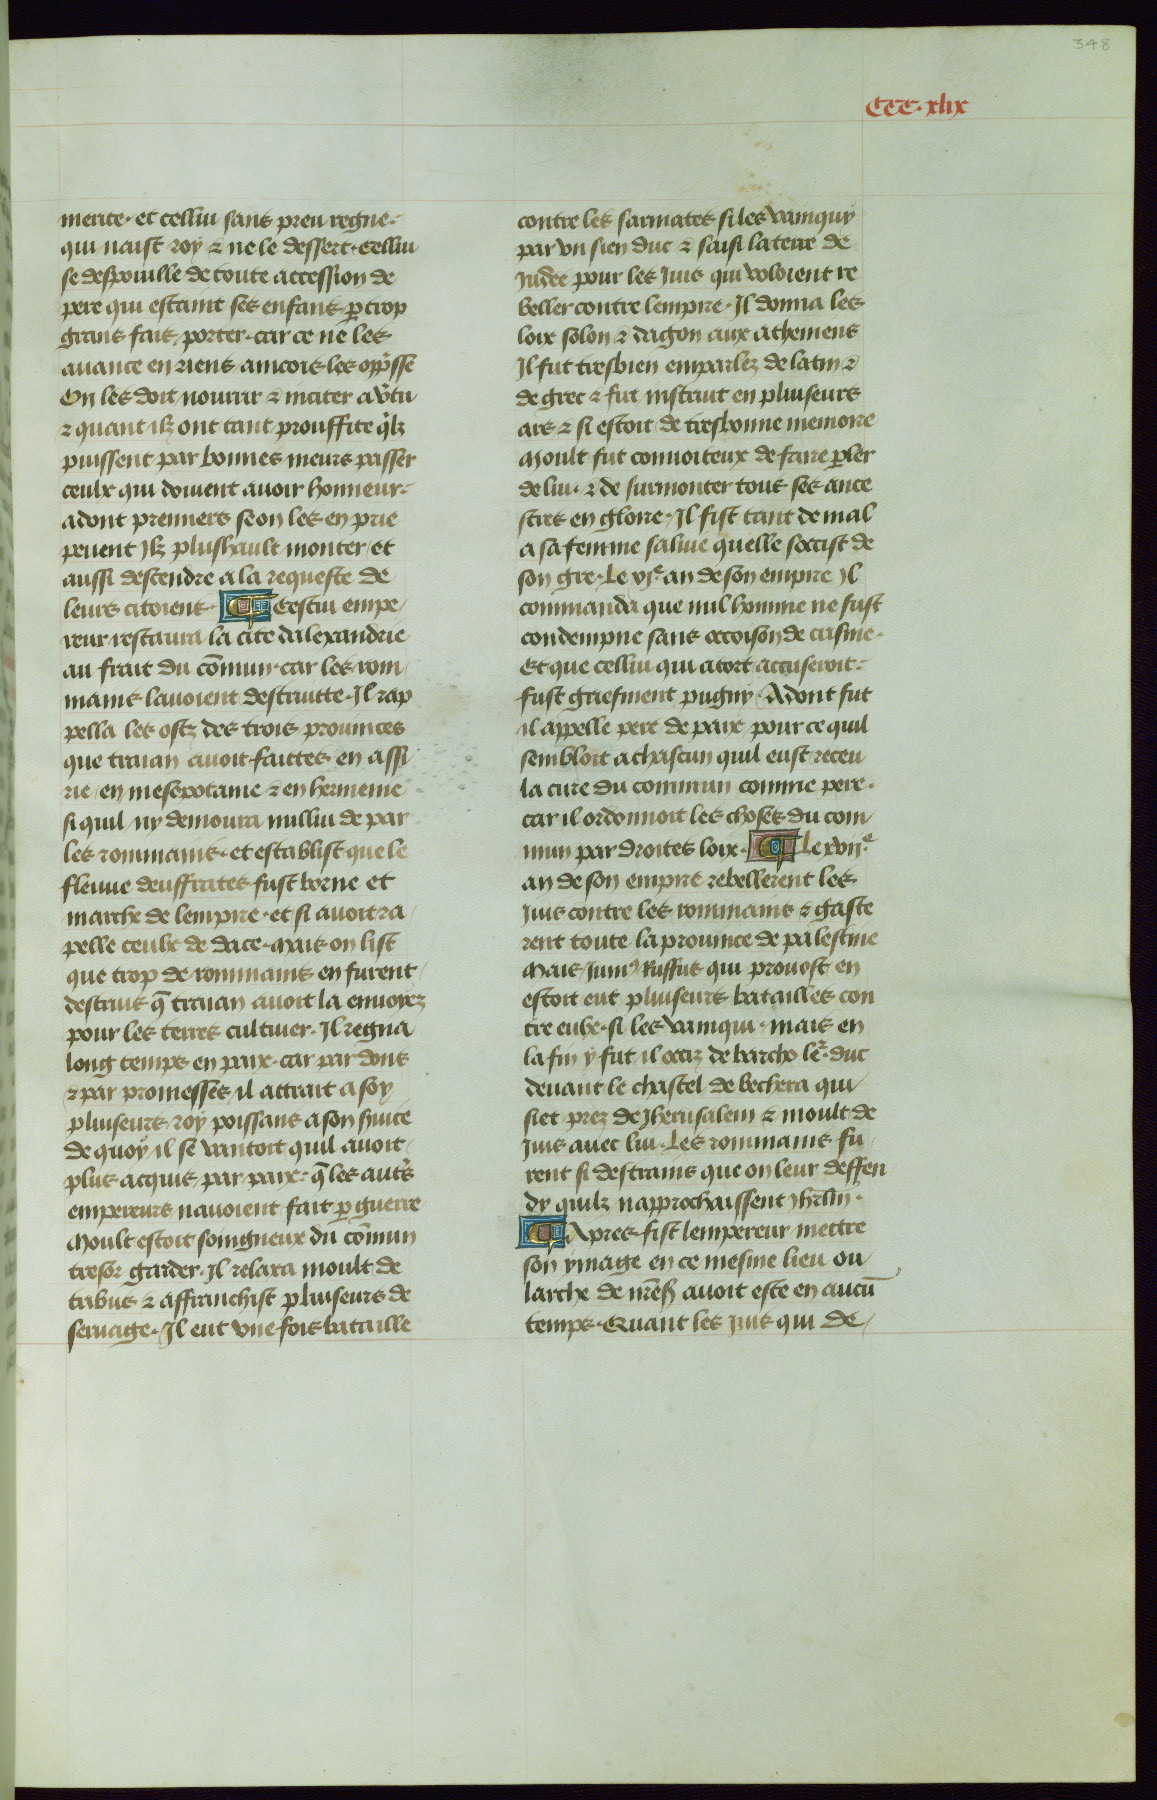 348
CCC·xlix
merite· et cellui sans preu regne·
qui naist roy & ne le dessert· Cellui
se despouille de toute accession de
pere qui estaint ses enfans p trop
grans fais porter· car ce ne les
auance en riens aincois les opp̃sse
On les doit nourrir & inciter a v̓tu
& quant ilz ont tant prouffite q̃lz
puissent par bonnes meurs passer
ceulx qui doiuent auoir honneur·
adont premiers se on les en prie
peuent Ilz plus hault monter/ et
aussi descendre a la requeste de
leurs citoiens· Cestui empe/
reur restaura la cite dalexandrie
au frait du cõmun· car les rom/
mains lauoient destruitte· Il rap
pella les ostz des trois prouinces
que traian auoit faittes en assi/
rie/ en mesopotame & en hermenie
si quil ny demoura nullui de par
les rommains· et establist que le
fleuue deuffrates fust borne et
marche de lempire· et si auoit ra/
pelle ceulx de dace· mais on list
que trop de rommains en furent/
destruis q̃ traian auoit la enuoyez
pour les terres cultiuer· Il regna
long temps en paix· car par dons
& par promesses il attrait a soy
pluiseurs roy poissans a son s̓uice
de quoy il se vantoit quil auoit/
plus acquis par paix· q̃ les autr̃s
empereurs nauoient fait p guerre
Moult estoit soingneux du cõmun
tresor garder· Il relaxa moult de
tribus & affranchist pluiseurs de
seruage· Il eut vne fois bataille
contre les sarmates si les vainquy
par vn sien duc & saisi la terre de
Iudee pour les Iuis qui voloient re
beller contre lempire· Il donna les
loix solon & dragon aux atheniens
Il fut tresbien emparlez de latin &
de grec & fut instruit en pluiseurs
ars & si estoit de tresbonne memoire
Moult fut conuoiteux de faire p̱ler
de lui· & de surmonter tous ses ance
stres en gloire· Il fist tant de mal
a sa femme saline quelle soccist de
son gre· Le vjᵉ an de son empire Il
commanda que nul homme ne fust
condempne sans occoison de crisme·
Et que cellui qui a tort accuseroit·
fust griefment pugny· Adont fut
il appelle pere de paix pour ce quil
sembloit a chascun quil eust receu
la cure du commun comme pere·
car il ordonnoit les choses du com/
mun par droites loix· Le xvijᵉ
an de son empire rebellerent les
Iuis contre les rommains & gaste
rent toute la prouince de palestine
Mais Iuniꝰ Ruffus qui prouost en
estoit eut pluiseurs batailles con
tre eulx· si les vainqui· mais en
la fin y fut il occiz de barcho ler̃ duc
deuant le chastel de bechera qui
siet prez de Iherusalem & moult de
Iuis auec lui· Les rommains fu/
rent si destrains que on leur deffen
dy quilz napprochaissent Ihr̃lm·
Apres fist lempereur mettre
son ymage en ce mesme lieu ou/
larche de nrẽs̃ auoit este en aucũ
temps· Quant les Iuis qui de/